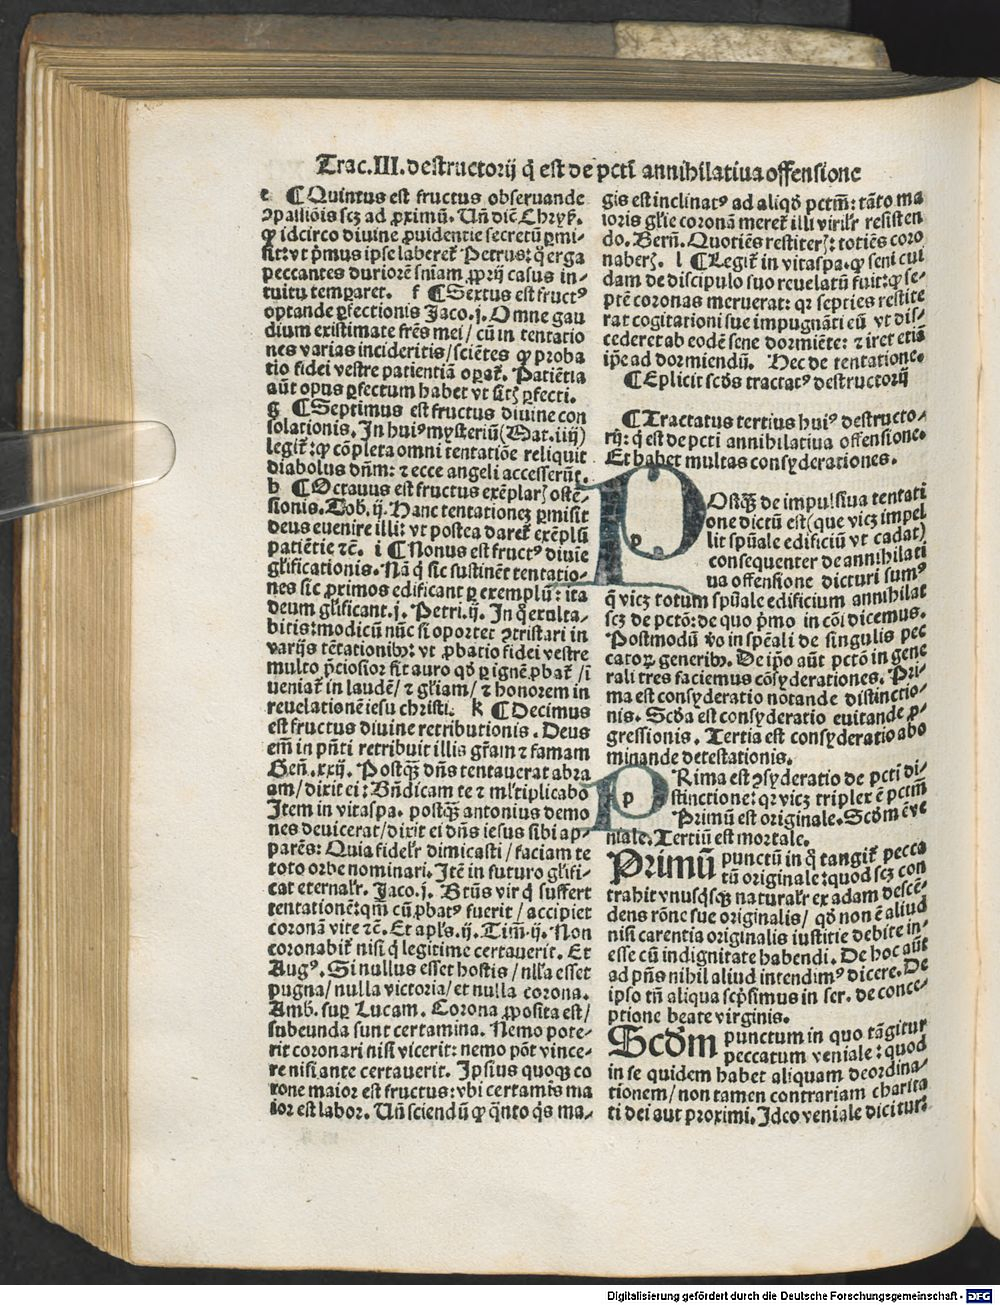 Trac.III.destructorij q̃ est de pctī annihilatiua offensione
e ¶Quintus est fructus obseruande
ↄpassiōis scꝫ ad ꝓximũ. Uñ diẽ Chryſ.
ꝙ idcirco diuine ꝓuidentie secretũ ꝑmi-
sit:vt p̃mus ipse laberet̃ Petrus: q̃ erga
peccantes duriorẽ sñiam ꝓꝑrij casus in-
tuitu temꝑaret. f ¶Sextus est fructꝰ
optande ꝑfectionis Jaco.j. Omne gau
dium existimate fr̃es mei/ cũ in tentatio
nes varias incideritis/sciẽtes ꝙ proba
tio fidei vestre patientiã oꝑat̃. Patiẽtia
aũt opus ꝑfectum habet vt sit̃ ꝑfecti.
g ¶Septimus est fructus diuine con
solationis. In huiꝰ mysteriũ(Mat.iiij)
legit̃:ꝙ cõpleta omni tentatiõe reliquit
diabolus dñm: ⁊ ecce angeli accesserũt.
h ¶Octauus est fructus exẽplarꝭ ostẽ-
sionis. Tob. ij. Hanc tentationeꝫ ꝑmisit
deus euenire illi: vt postea daret̃ exẽplũ
patiẽtie ⁊c̃. i ¶Nonus est fructꝰ diuie
gl̃ificationis. Nã q̃ sic sustinẽt tentatio-
nes sic ꝓximos edificant ꝑ exemplũ: ita
deum gl̃ificant.j. Petri.ij. In q̃ exulta-
bitis:modicũ nũc si oportet ↄtristari in
varijs tẽtationibꝰ: vt ꝓbatio fidei vestre
multo p̃ciosior sit auro qd̃ ꝑ ignẽ ꝓbat̃ /ī
ueniat̃ in laudẽ/ ⁊ gl̃iam/ ⁊ honorem in
reuelationẽ iesu christi. k ¶Decimus
est fructus diuine retributionis. Deus
em̃ in pñti retribuit illis gr̃am ⁊ famam
Geñ.xxij. Postꝗ̃ dñs tentauerat abra
am/ dixit ei: Bñdicam te ⁊ ml̃tiplicabo
Item in vitaspa. postꝗ̃ antonius demo
nes deuicerat/dixit ei dñs iesus sibi ap-
parẽs: Quia fidelr̃ dimicasti / faciam te
toto orbe nominari. Itẽ in futuro gl̃ifi-
cat eternalr̃. Jaco.j. Btũs vir q̃ suffert
tentationẽ:qm̃ cũ ꝓbatꝰ fuerit / accipiet
coronã vite ⁊c̃. Et apl̃s.ij. Tim̃.ij. Non
coronabit̃ nisi q̃ legitime certauerit. Et
Augꝰ. Si nullus esset hostis / nl̃la esset
pugna/ nulla victoria/ et nulla corona.
Amb. suꝑ Lucam. Corona ꝓposita est/
subeunda sunt certamina. Nemo pote-
rit coronari nisi vicerit: nemo põt vince-
re nisi ante certauerit. Ipsius quoqꝫ co
rone maior est fructus:vbi certamis ma
ior est labor. Uñ sciendũ ꝙ q̃nto q̃s ma-
gis est inclinatꝰ ad aliqd̃ pctm̃: tãto ma
ioris gl̃ie coronã meret̃ illi virilr̃ resisten
do. Berñ. Quotiẽs restiterꝭ: totiẽs coro
naberꝭ. l ¶Legit̃ in vitaspa.ꝙ seni cui
dam de discipulo suo reuelatũ fuit:ꝙ se-
ptẽ coronas meruerat: qꝛ septies restite
rat cogitationi sue impugnãti eũ vt dis-
cederet ab eodẽ sene dormiẽte: ⁊ iret etiã
ip̃e ad dormiendũ. Hec de tentatione.
¶Explicit scd̃s tractatꝰ destructorij
¶Tractatus tertius huiꝰ destructo-
rij: q̃ est de pcti annihilatiua offensione.
Et habet multas consyderationes.
POstꝗ̃ de impulsiua tentati
one dictũ est(que viꝫ impel
lit spũale edificiũ vt cadat)
consequenter de annihilati
ua offensione dicturi sumꝰ
q̃ viꝫ totum spũale edificium annihilat
scꝫ de pctõ:de quo p̃mo in cõi dicemus.
Postmodũ v̾o in spẽali de singulis pec
catoꝝ generibꝰ. De ip̃o aũt pctõ in gene
rali tres faciemus cõsyderationes. Pri-
ma est consyderatio notande distinctio-
nis. Scd̃a est consyderatio euitande ꝓ-
gressionis. Tertia est consyderatio abo
minande detestationis.
PRima est ↄsyderatio de pcti di-
stinctione: qꝛ viꝫ triplex ẽ pctm̃
Primũ est originale. Scd̃m ẽ ve
niale. Tertiũ est mortale.
Primũ punctũ in q̃ tangit̃ pecca
tũ originale:quod scꝫ con
trahit vnusq̃sqꝫ naturalr̃ ex adam descẽ-
dens rõne sue originalis/ qd̃ non ẽ aliud
nisi carentia originalis iustitie debite in-
esse cũ indignitate habendi. De hoc aũt
ad pñs nihil aliud intendimꝰ dicere. De
ipso tñ aliqua scp̃simus in ser. de conce-
ptione beate virginis.
Scd̃m punctum in quo tãgitur
peccatum veniale: quod
in se quidem habet aliquam deordina-
tionem/ non tamen contrariam charita
ti dei aut proximi. Ideo veniale dicitur:
Digitalisierung gefördert durch die Deutsche Forschungsgemeinschaft - DFG